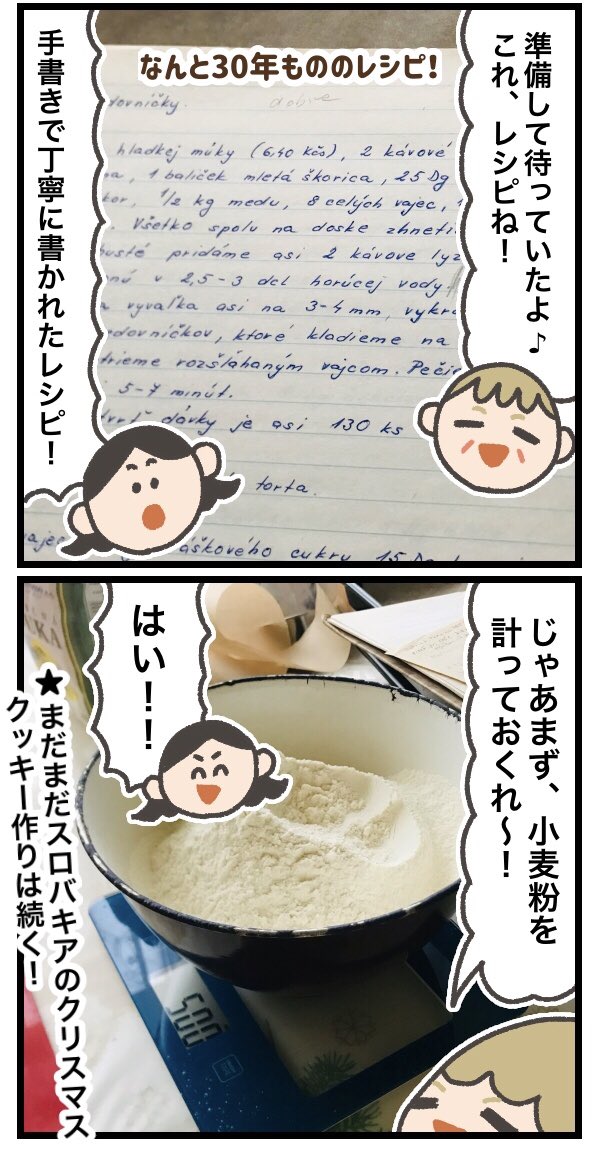 準備して待っていたよ♪
これ、レシピね！
なんと30年もののレシピ！
手書きで丁寧に書かれたレシピ！
dobre
hladkej múky (6,40 Kčs), 2 kávové
, 1 balíček mletá škorica, 25 Dg
1/2 kg medu, 8 celých vajec, 1
Všetko spolu na doske
pridáme asi 2 kávove
v 2,5-3 dcl horúcej vody.
vyvaľka asi na 3-4 mm,
ktoré kladieme na
rozšláhaným vajcom.
5-7 minút.
dávky je asi 130 ks
torta.
cukru 15 Dg
じゃあまず、小麦粉を
計っておくれ〜！
はい！！
500
★まだまだスロバキアのクリスマス
クッキー作りは続く！